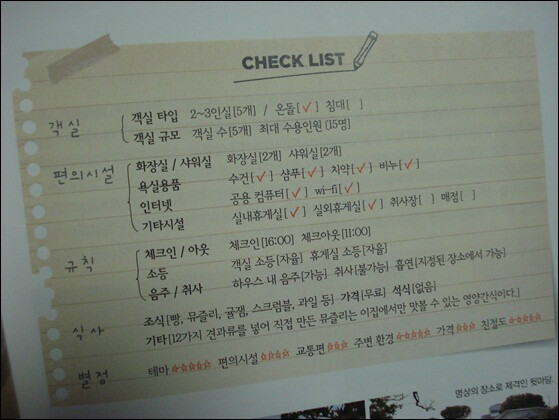 CHECK LIST
객실
객실 타입 2~3인실[5개] / 온돌[✓] 침대[ ]
객실 규모 객실 수[5개] 최대 수용인원 (15명)
편의시설
화장실 / 샤워실 화장실[2개] 샤워실[2개]
욕실용품 수건[✓] 샴푸[✓] 치약[✓] 비누[✓]
인터넷 공용 컴퓨터[✓] wi-fi[✓]
기타시설 실내휴게실[✓] 실외휴게실[✓] 취사장[ ] 매점[ ]
규칙
체크인 / 아웃 체크인[16:00] 체크아웃[11:00]
소등 객실 소등[자율] 휴게실 소등[자율]
음주 / 취사 하우스 내 음주[가능] 취사[불가능] 흡연[지정된 장소에서 가능]
식사
조식[빵, 뮤즐리, 귤잼, 스크럼블, 과일 등] 가격[무료] 석식[없음]
기타[12가지 견과류를 넣어 직접 만든 뮤즐리는 이집에서만 맛볼 수 있는 영양간식이다.]
별정
테마☆☆☆☆☆ 편의시설☆☆☆☆ 교통편☆☆☆ 주변 환경☆☆☆☆☆ 가격☆☆☆ 친절도☆☆☆☆☆
명상의 장소로 제격인 뒷마당.